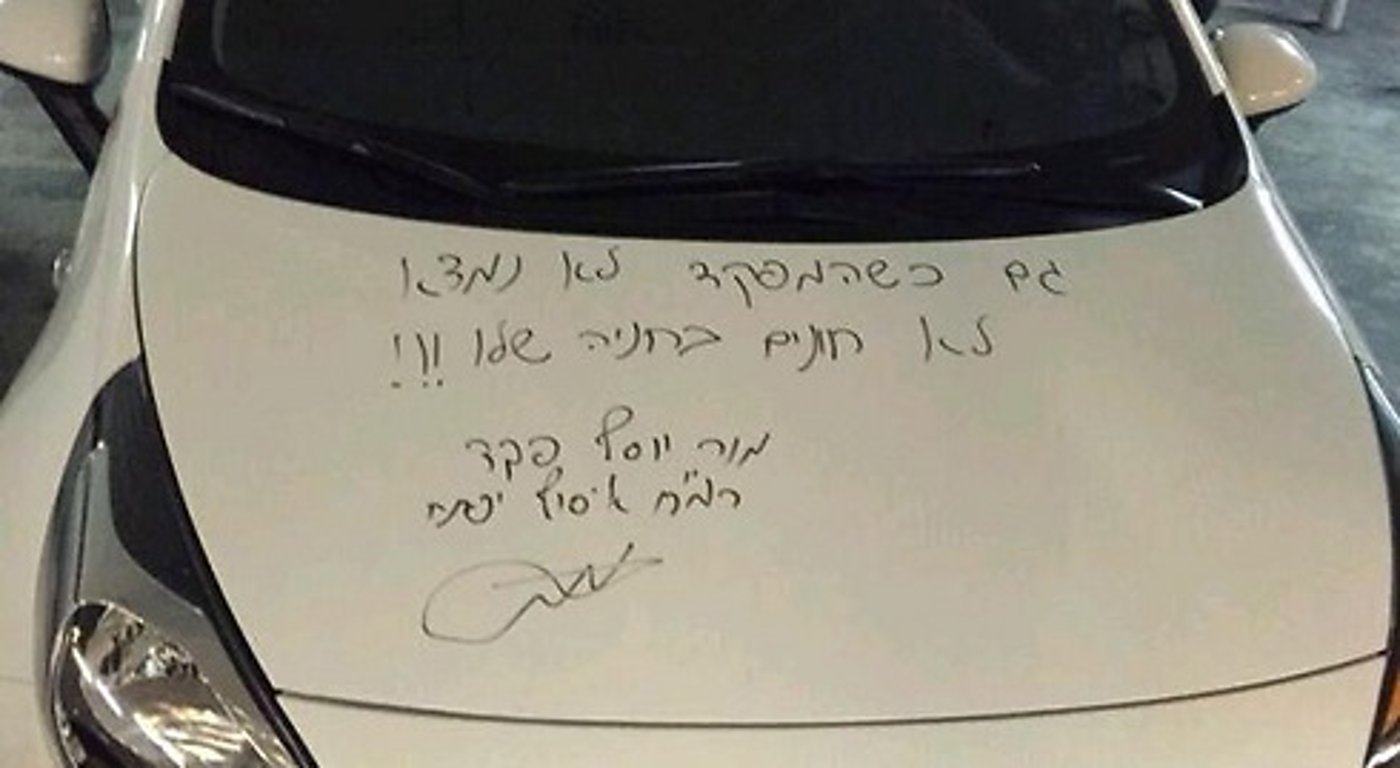 גם כשהמפקד לא נמצא
לא חונים בחניה שלו !!!
מור יוסף פקד
רמ״ח איסוף יפתח